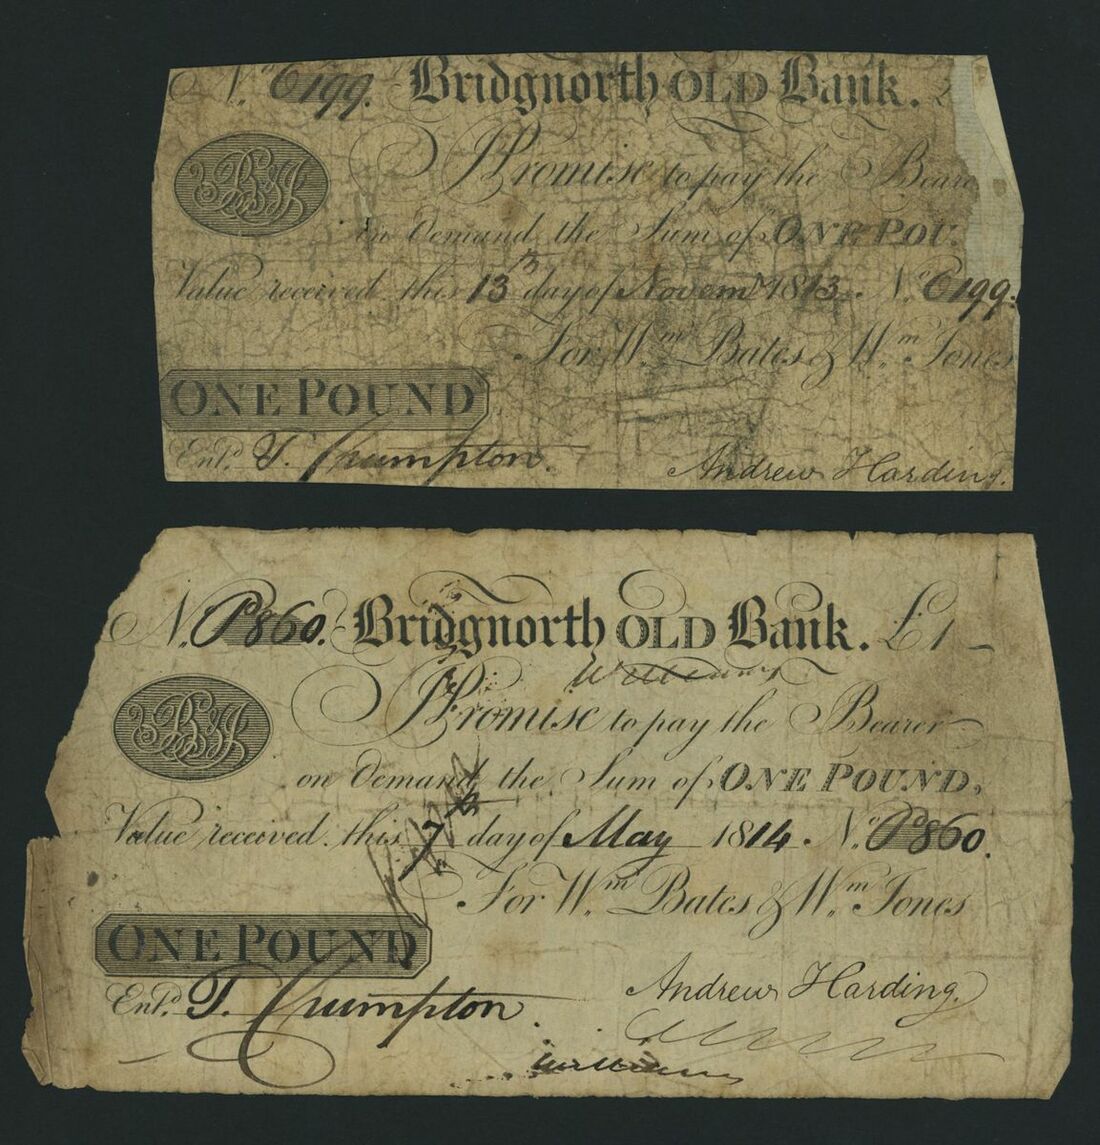 No. C199. Bridgnorth OLD Bank.
I Promise to pay the Beare
on Demand the Sum of ONE POU
Value received this 13th day of Novemr 1813. No. C199.
For Wm. Bates & Wm. Jones
ONE POUND
Entd. T. Crumpton.
Andrew Harding.
No. P860. Bridgnorth OLD Bank. £1
I Promise to pay the Bearer
on Demand the Sum of ONE POUND,
Value received this 7th day of May 1814. No. P860.
For Wm. Bates & Wm. Jones
ONE POUND
Andrew Harding.
Entd. T. Crumpton